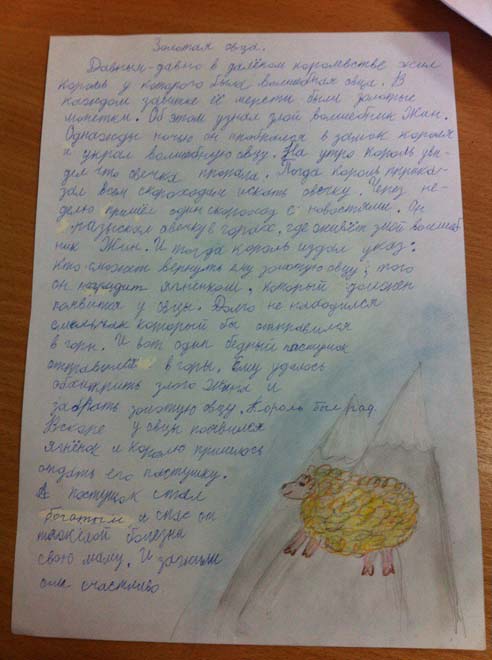 Золотая овца.
Давным-давно в далёком королевстве жил
король у которого была волшебная овца. В
каждом завитке её шерсти были золотые
монетки. Об этом узнал злой волшебник Жан.
Однажды ночью он пробрался в замок короля
и украл волшебную овцу. На утро король уви-
дел что овечка пропала. Тогда король приказ-
зал всем скороходам искать овечку. Через не-
делю пришёл один скороход с новостями. Он
разыскал овечку в горах, где живёт злой волшеб
ник Жан. И тогда король издал указ:
кто сможет вернуть ему золотую овцу, того
он наградит ягнёнком, который должен
появится у овцы. Долго не находился
смельчак который бы отправился
в горы. И вот один бедный пастушок
отправился в горы. Ему удалось
обхитрить злого Жана и
забрать золотую овцу. Король был рад.
Вскоре у овцы появился
ягнёнок и королю пришлось
отдать его пастушку.
А пастушок стал
богатым и спас от
тяжёлой болезни
свою маму. И зажили
они счастливо